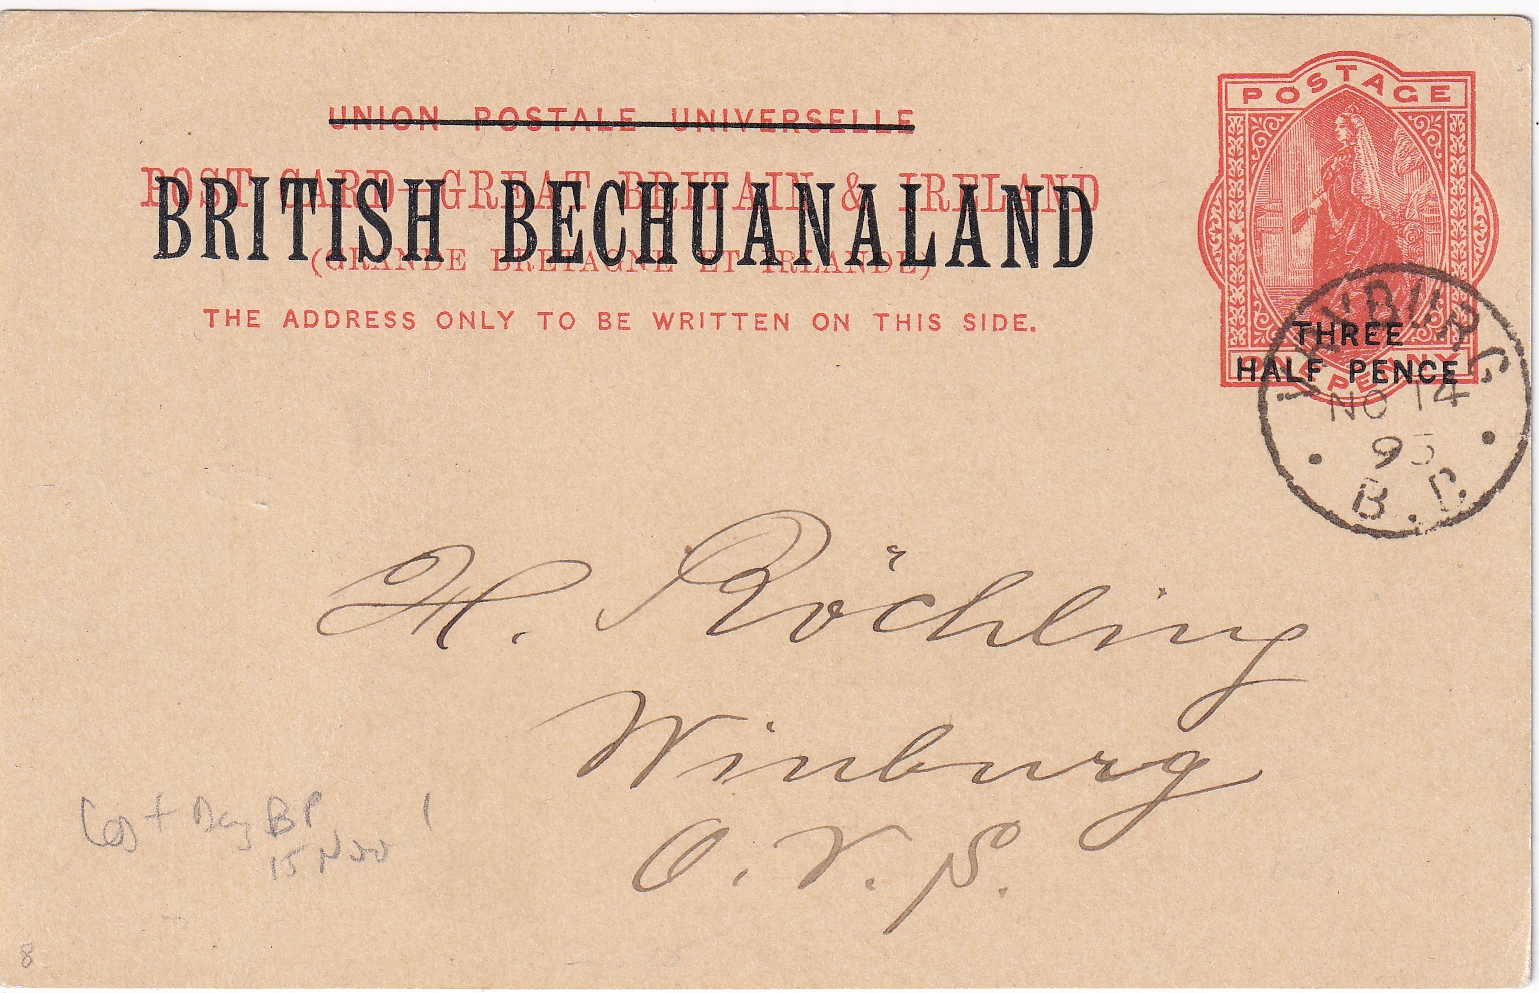 UNION POSTALE UNIVERSELLE
POST CARD—GREAT BRITAIN & IRELAND
BRITISH BECHUANALAND
(GRANDE BRETAGNE ET IRLANDE)
THE ADDRESS ONLY TO BE WRITTEN ON THIS SIDE.
POSTAGE
ONE PENNY
THREE
HALF PENCE
VRYBURG
NO 14
95
B.
H. Röchling
Winburg
O. V. S.
Day BP
15 Nov
8